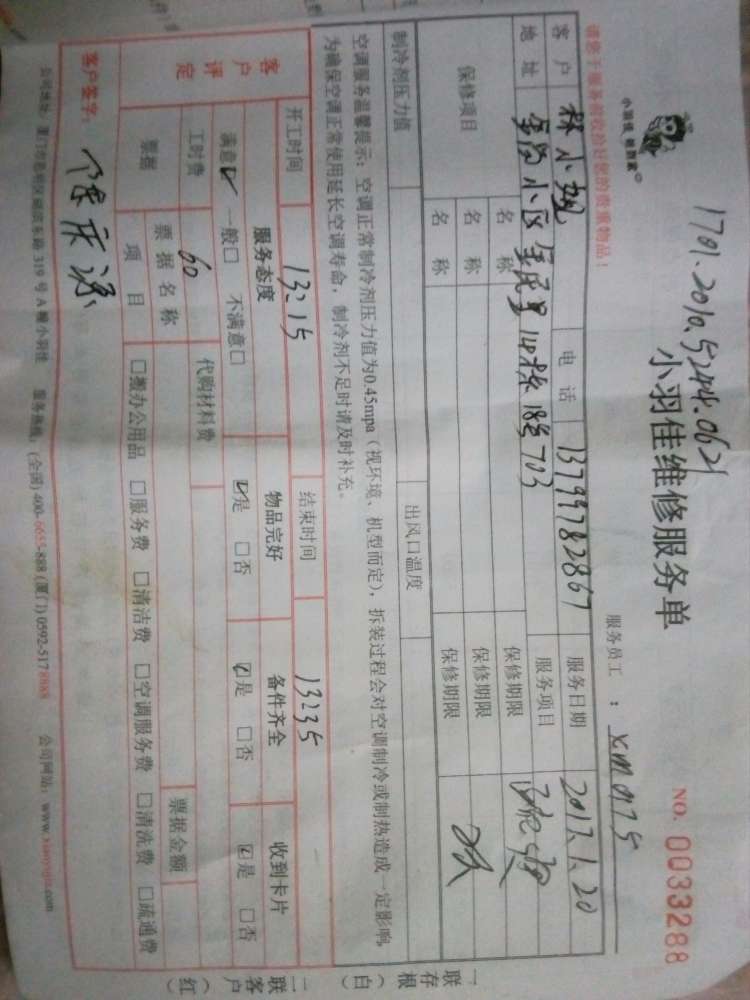 1701.2010.5244.0621
小羽佳维修服务单
NO. 0033288
服务员工 : xm0175
请您于服务前收拾好您的贵重物品!
客户 林小姐 电话 13799782867 服务日期 2017.1.20
地址 小区 14栋 18号703 服务项目
保修项目 名称 保修期限
名称 保修期限
名称 保修期限
制冷剂压力值 出风口温度
空调服务温馨提示:空调正常制冷剂压力值为0.45mpa(视环境、机型而定),拆装过程会对空调制冷或制热造成一定影响,
为确保空调正常使用延长空调寿命,制冷剂不足时请及时补充。
开工时间 13:15 结束时间 13:35
客户评定 服务态度 物品完好 备件齐全 收到卡片
满意☑ 一般□ 不满意□ ☑是 □否 ☑是 □否 ☑是 □否
工时费 60 代购材料费
票据 票据名称 票据金额
项目 □搬办公用品 □服务费 □清洁费 □空调服务费 □清洗费 □疏通费
客户签字:
公司地址: 厦门市思明区 319号A幢小羽佳 服务热线: (全国) 400-6655-888 (厦门) 0592-5178888 公司网站: www.xiaoyujia.com
一联存根(白)
二联客户(红)